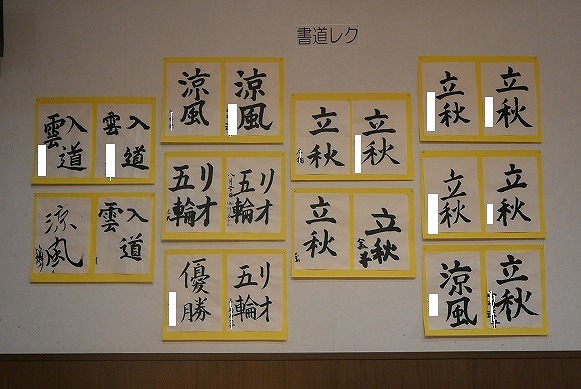 書道レク
立秋
立秋
立秋
立秋
立秋
涼風
立秋
立秋
立秋
立秋
涼風
涼風
リオ
五輪
リオ
五輪
リオ
五輪
優勝
入道
雲
入道
雲
入道
雲
涼風